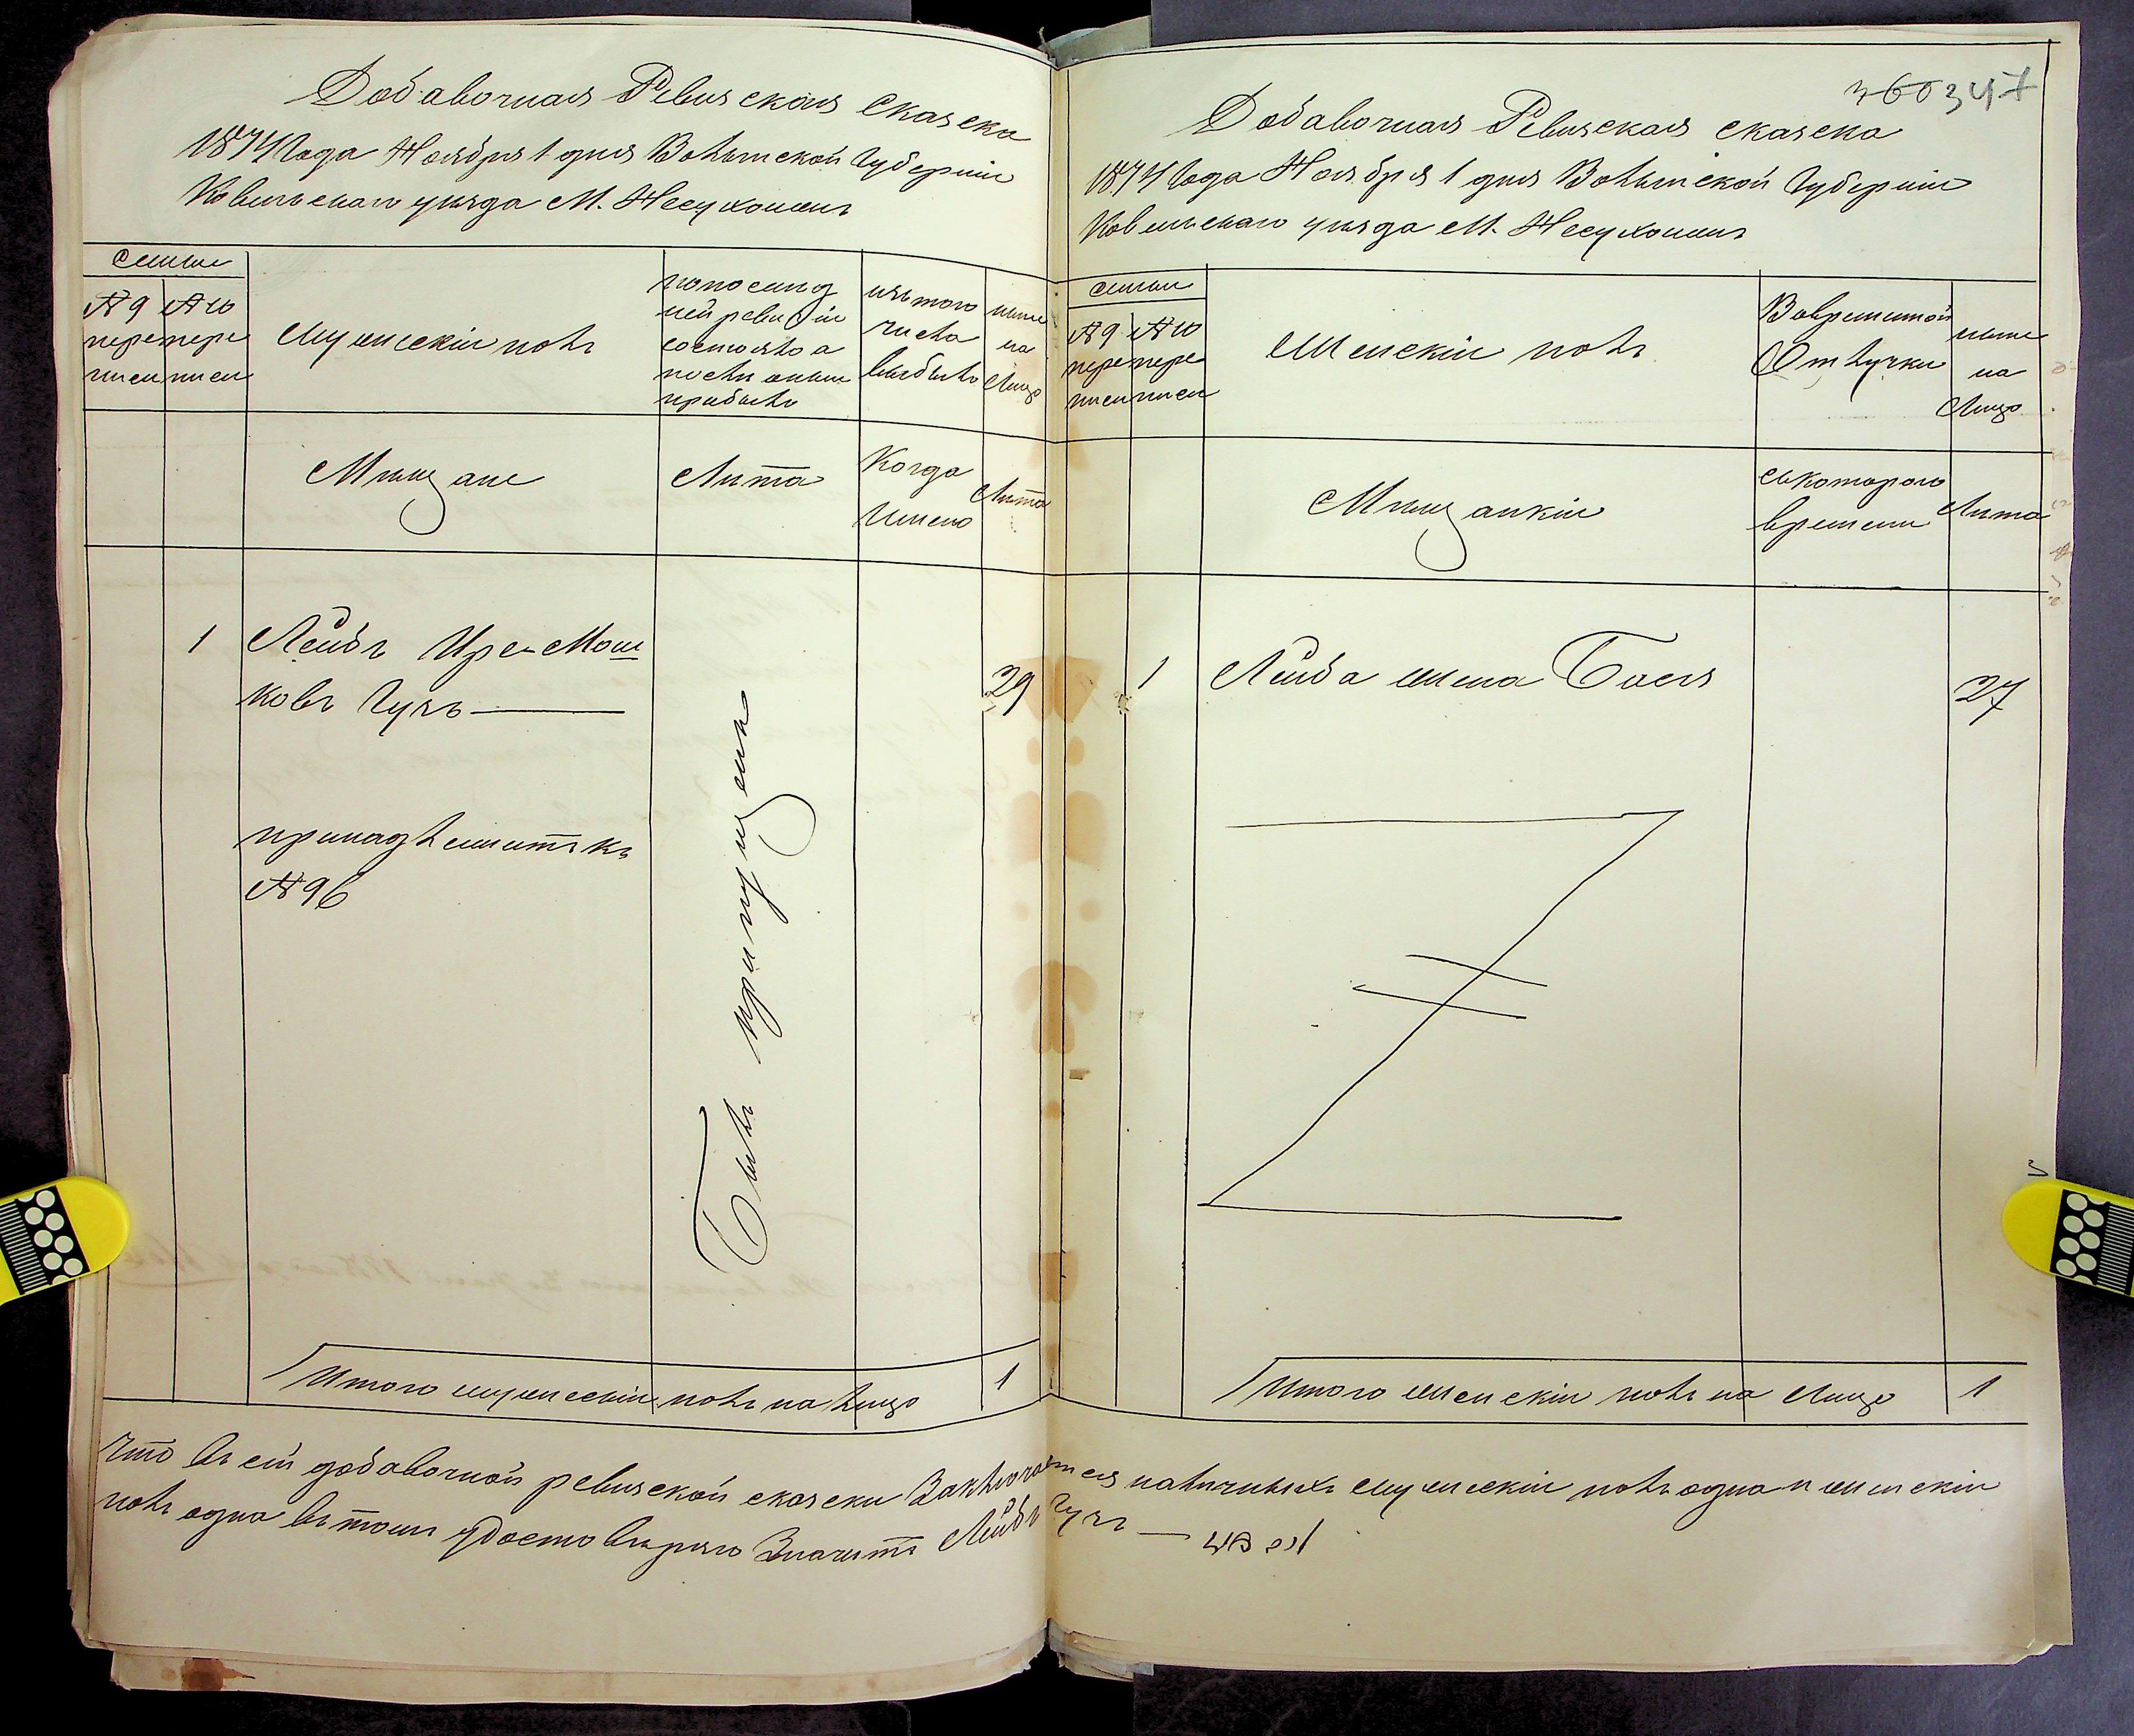 Добавочная Ревизская Сказска
1874 Года Ноября 1 дня Волынской Губерніи
Ковельскаго уезда М. Несухоиже
Семьи
№ 9 пере писи
№ 10 пере писи
Мужескій полъ
по посляд ней ревизіи состояло а посли оныи прибыло
изъ того числа выбыло
ныне на Лицо
Мещане
Лита
Когда Имено
Лита
1 Лейбъ Ире-Мош
ковъ Гузъ
29
принадлежитъ къ
№ 96
Былъ припущенъ
Итого мужескій полъ на лицо 1
360 347
Добавочная Ревизская сказска
1874 Года Ноября 1 дня Волынской Губерніи
Ковельскаго уезда М. Несухоиже
Семьи
№ 9 пере писи
№ 10 пере писи
Женскій полъ
Вовременной Отлучки
ныне на Лицо
Мещанкіи
съкоторого времени
Лита
1 Лейба жена Бася
27
Итого женскій полъ на Лицо 1
Что въ сей добавочной ревизской сказски Заключается наличныхъ мужескій полъ одна и женскій
полъ одна въ томъ удостовиряю Значитъ Лейбъ Гузъ